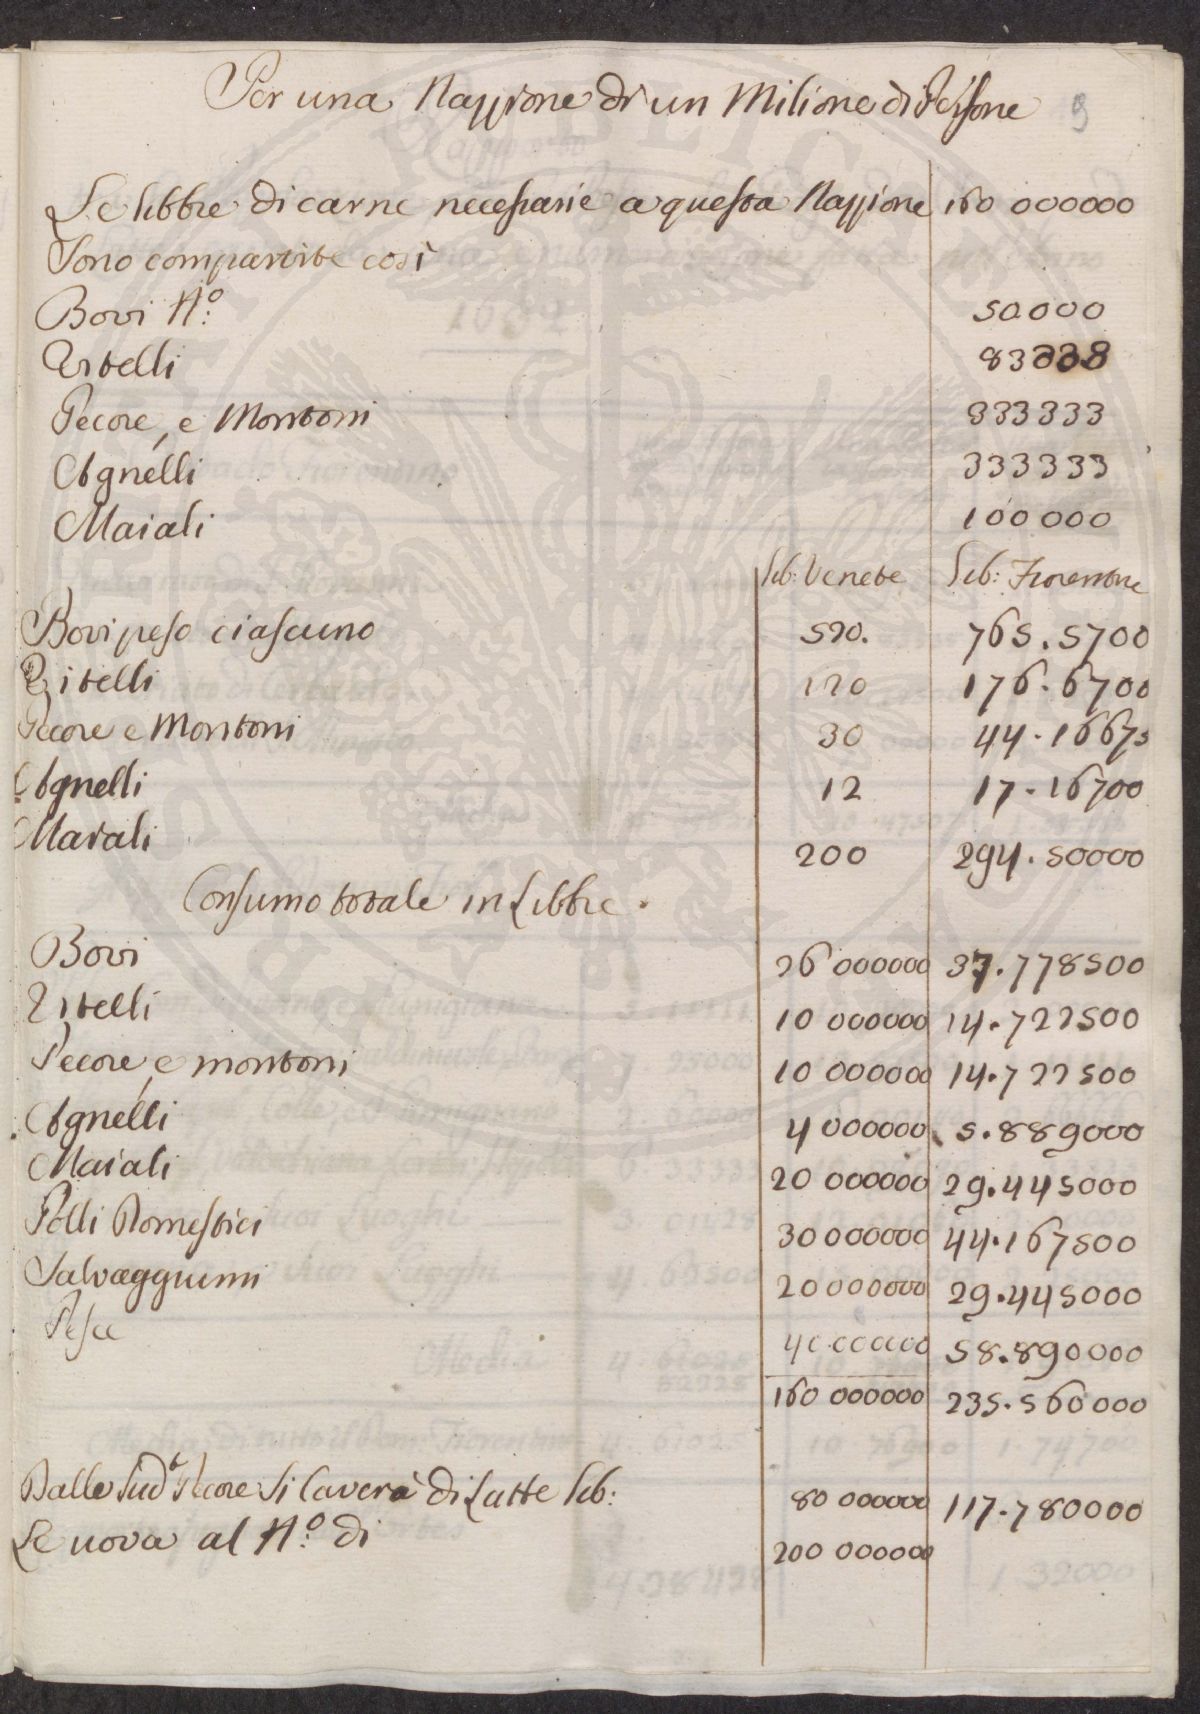 Per una Nazzione di un Milione di Persone 9
Le libbre di carne necessarie a questa Nazzione 160 000000
Sono compartite così
Bovi N.º 50000
Vitelli 83338
Pecore, e Montoni 333333
Agnelli 333333
Maiali 100000
Lib: Venete Lib: Fiorentine
Bovi peso ciascuno 520. 765.5700
Vitelli 120 176.6700
Pecore e Montoni 30 44.16675
Agnelli 12 17.16700
Maiali 200 294.50000
Consumo totale in Libbre.
Bovi 26 000000 37.778500
Vitelli 10 000000 14.722500
Pecore, e montoni 10 000000 14.722500
Agnelli 4 000000 5.889000
Maiali 20 000000 29.445000
Polli Domestici 30 000000 44.167500
Salvaggiumi 20 000000 29.445000
Pesce 40.000000 58.890000
160 000000 235.560000
Dalle Sud.e Pecore si caverà di Latte Lib: 80 000000 117.780000
Le uova al N.º di 200 000000